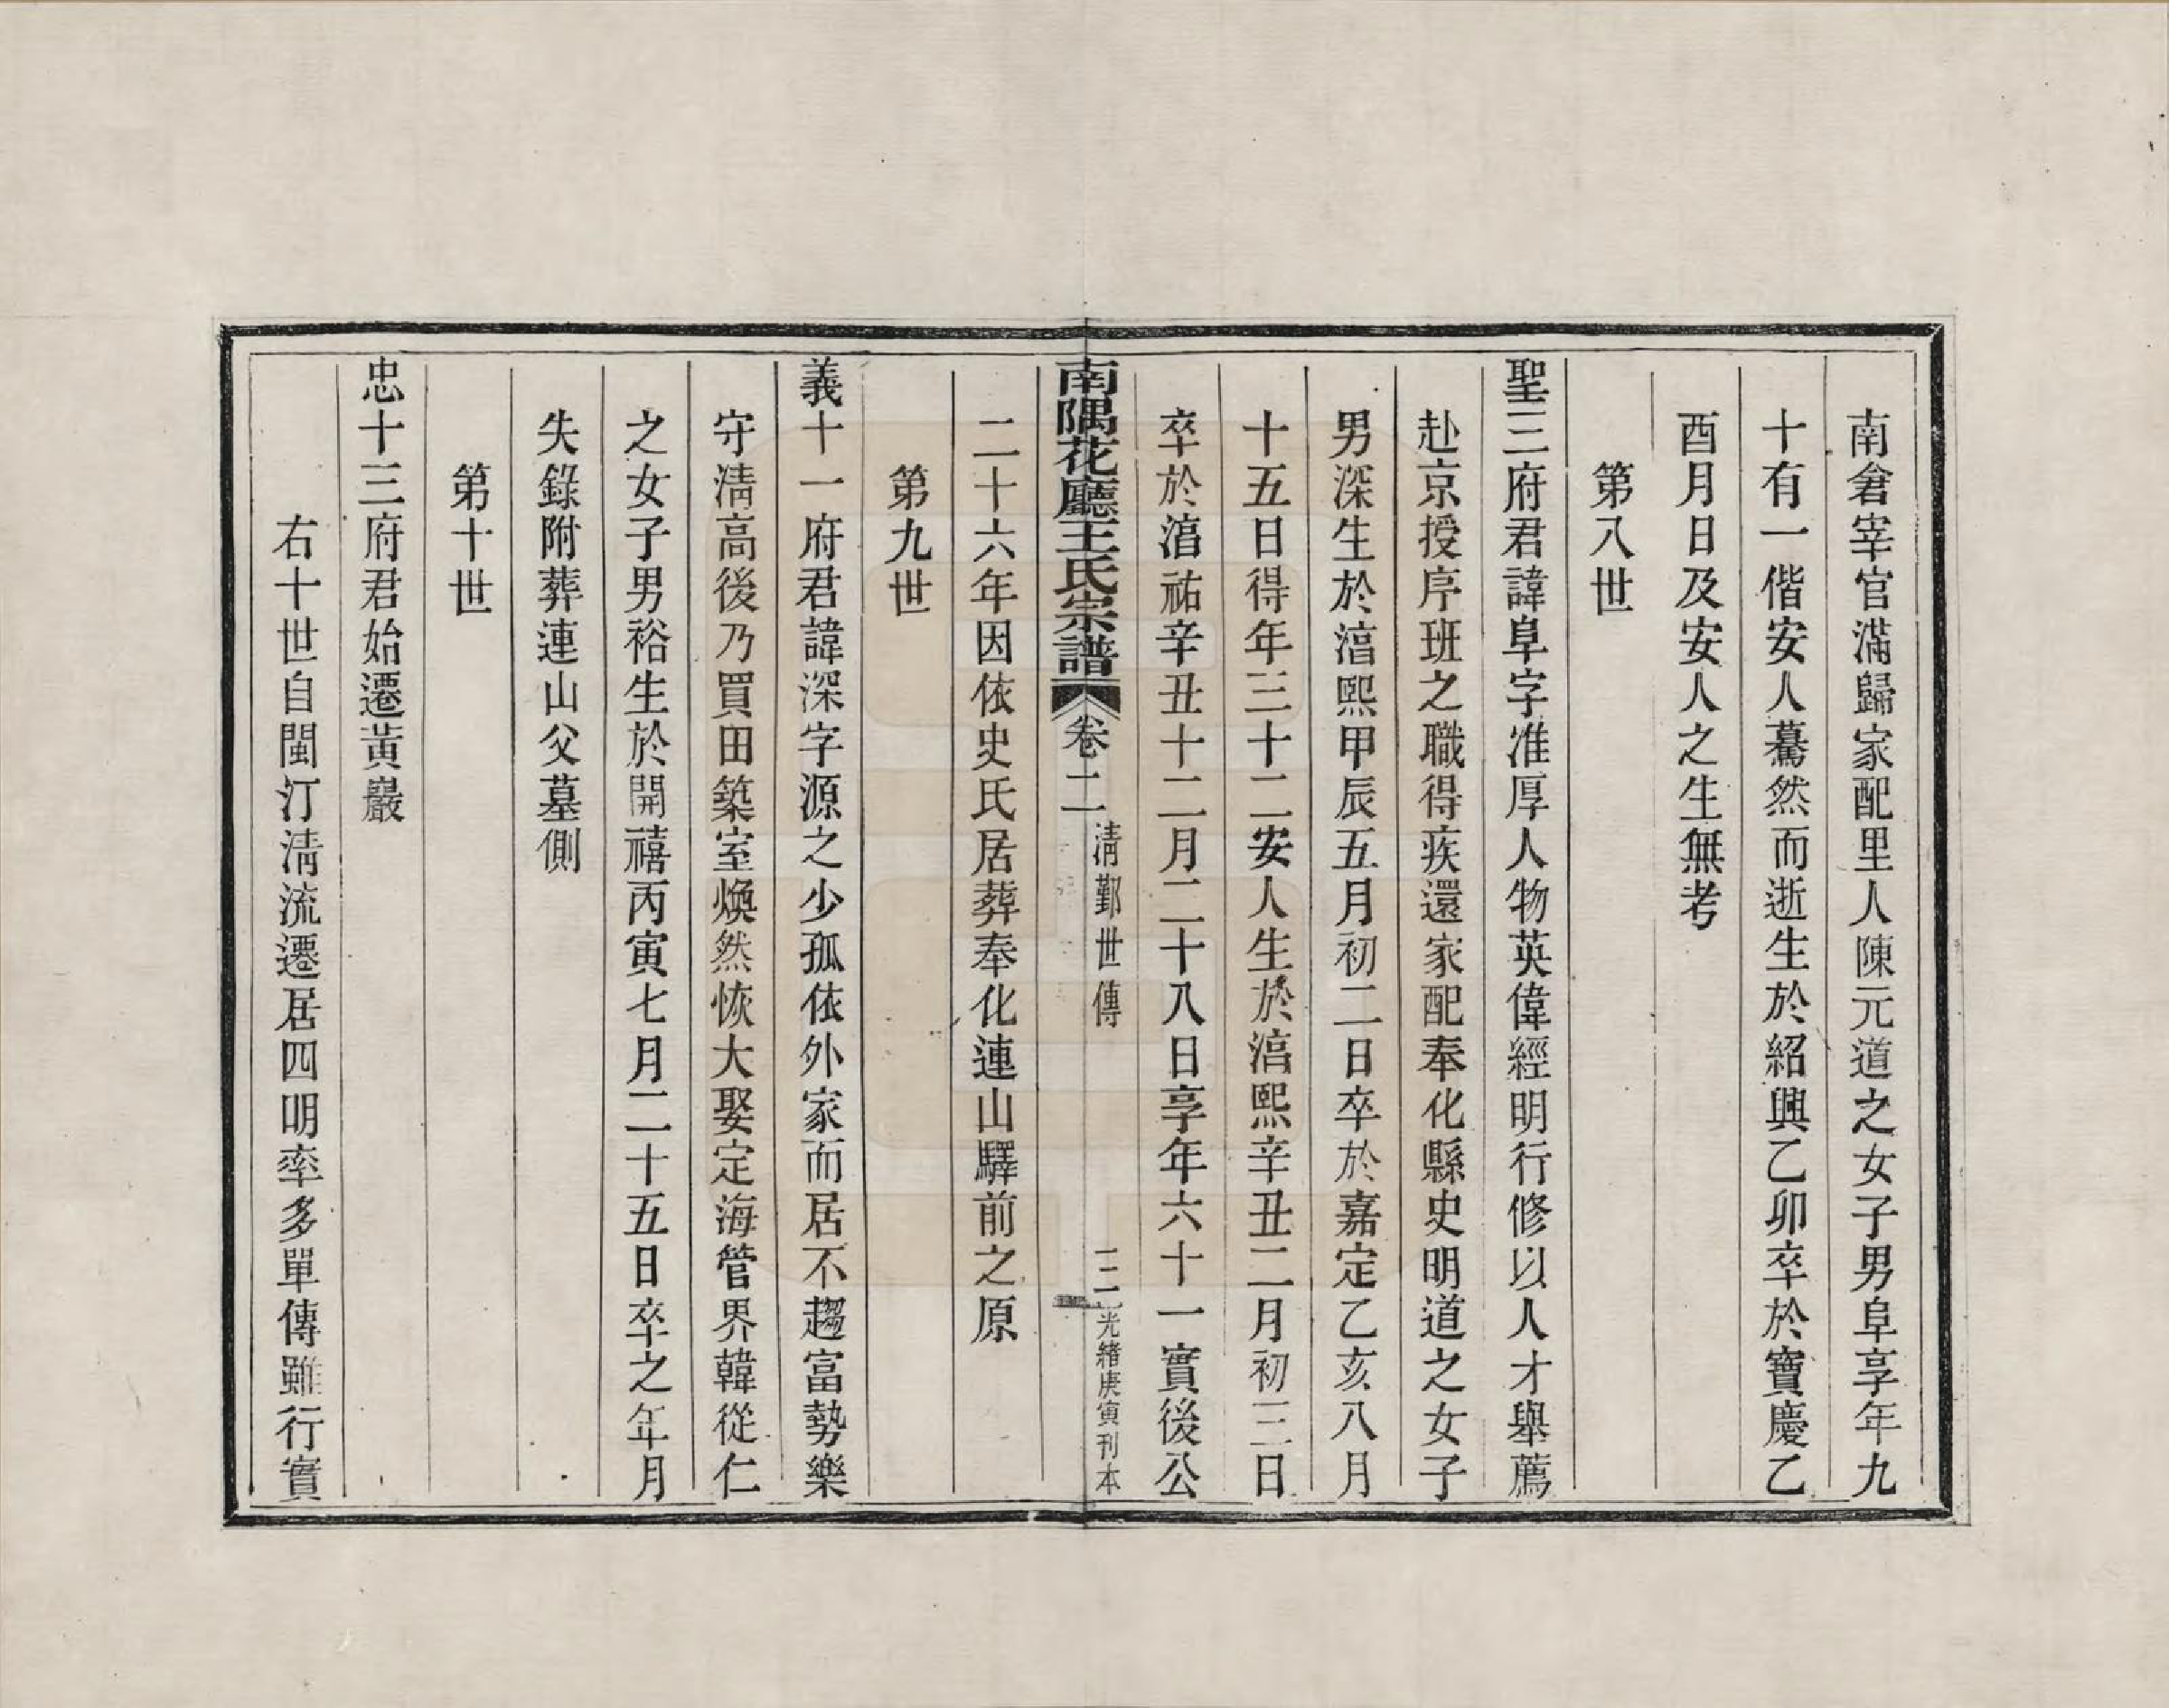 南倉宰官滿歸家配里人陳元道之女子男阜享年九
十有一偕安人驀然而逝生於紹興乙卯卒於寶慶乙
酉月日及安人之生無考
第八世
聖三府君諱阜字准厚人物英偉經明行修以人才舉薦
赴京授序班之職得疾還家配奉化縣史明道之女子
男深生於湻熙甲辰五月初二日卒於嘉定乙亥八月
十五日得年三十二安人生於湻熙辛丑二月初三日
卒於湻祐辛丑十二月二十八日享年六十一實後公
二十六年因依史氏居葬奉化連山驛前之原
南隅花廳王氏宗譜 卷二 清鄞世傳 二 光緒庚寅刊本
第九世
義十一府君諱深字源之少孤依外家而居不趨富勢樂
守清高後乃買田築室煥然恢大娶定海管界韓從仁
之女子男裕生於開禧丙寅七月二十五日卒之年月
失錄附葬連山父墓側
第十世
忠十三府君始遷黃巖
右十世自閩汀清流遷居四明率多單傳雖行實